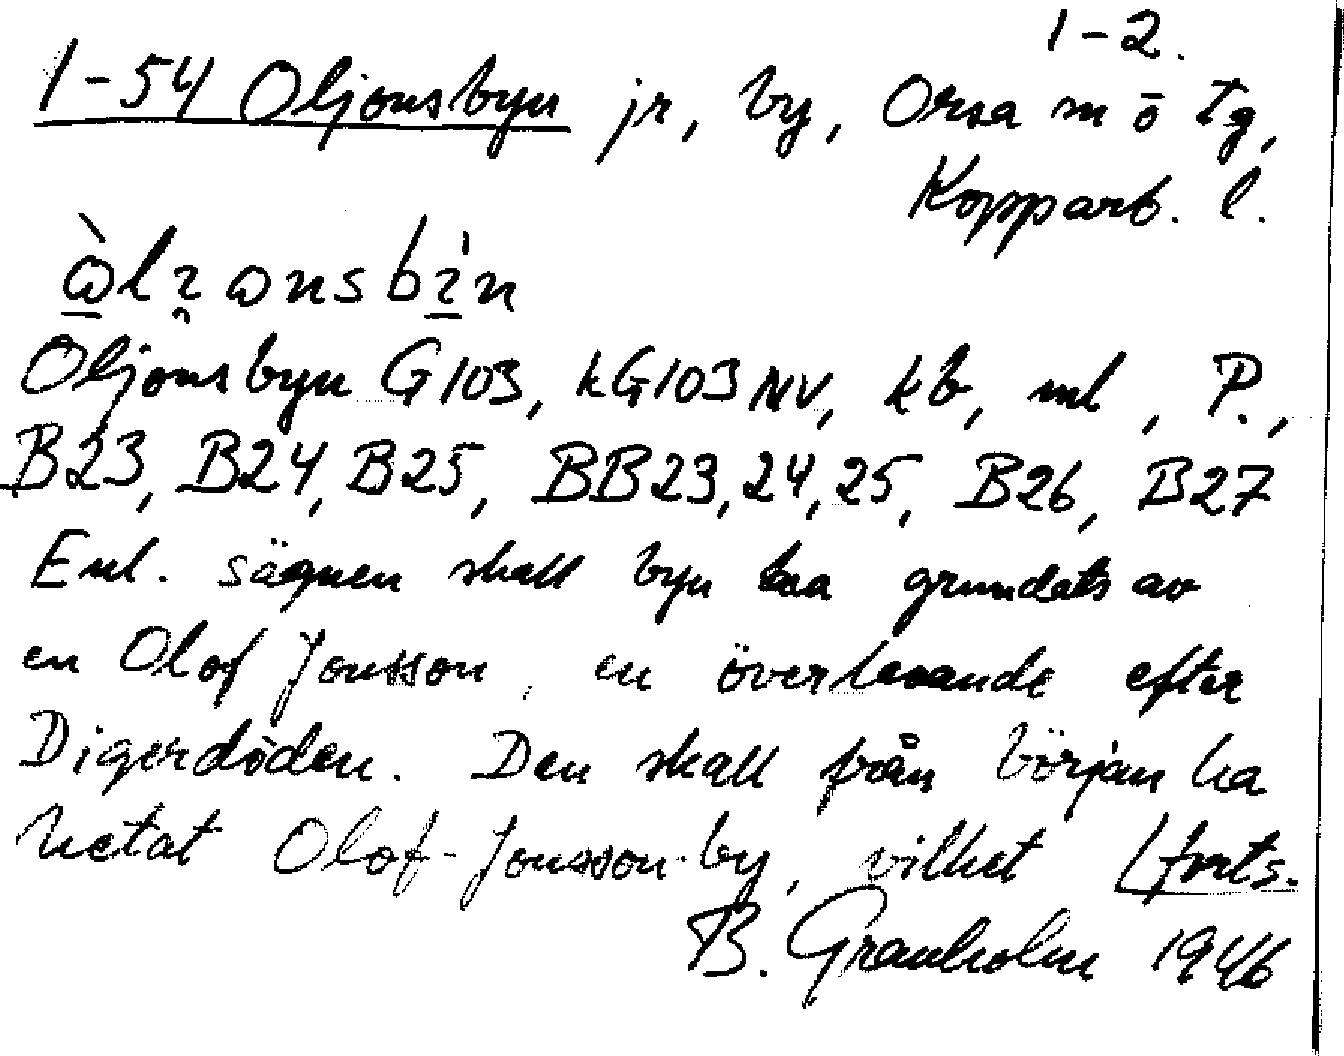 1-2.
1-54 Oljonsbyn jr, by, Orsa m ö tg,
Kopparb. l.
Oljonsbyn G103, kG103 NV, kb, ml, P.,
B23, B24, B25, BB23,24,25, B26, B27
Enl. sägnen skall byn haa grundats av
en Olof Jonsson, en överlevande efter
Digerdöden. Den skall från början ha
hetat Olof-Jonsson-by, vilket forts.
B. Granholm 1946